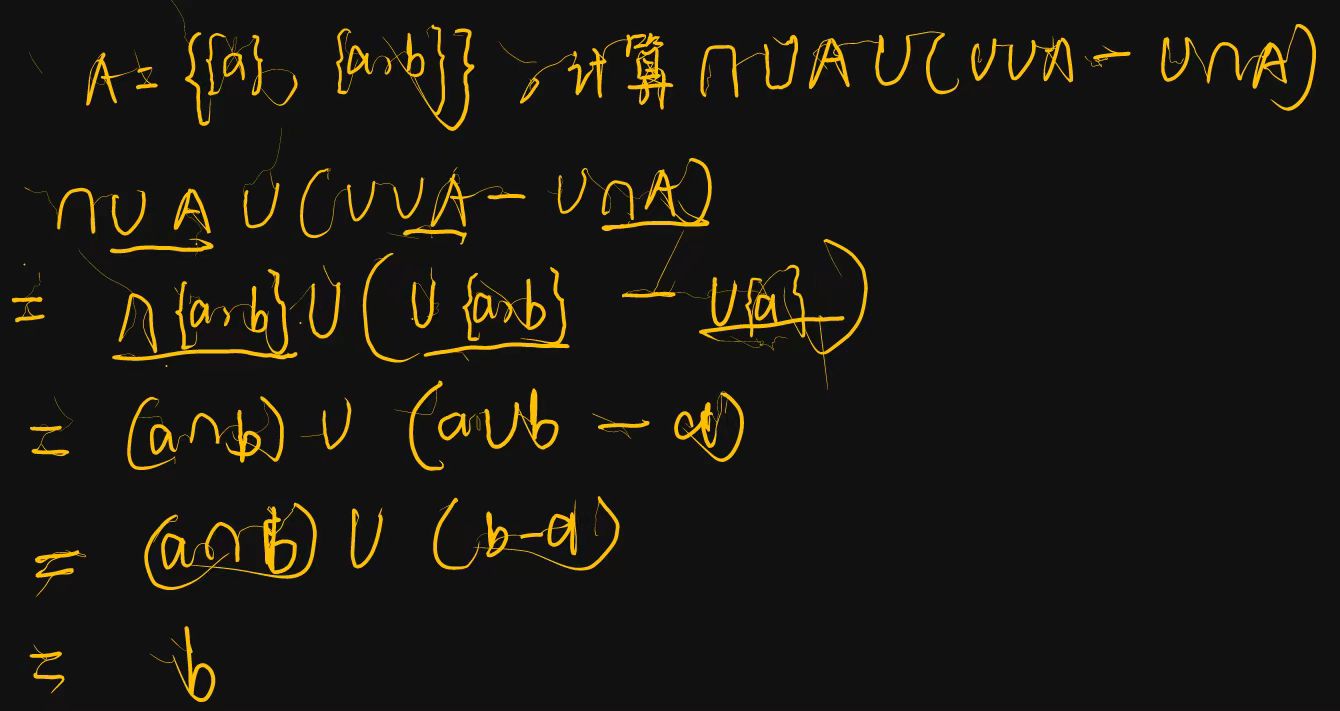 A = {{a}, {a,b}}, 计算 ∩∪A ∪ (∪∪A - ∪∩A)
∩∪A ∪ (∪∪A - ∪∩A)
= ∩{a,b} ∪ (∪{a,b} - ∪{a})
= (a∩b) ∪ (a∪b - a)
= (a∩b) ∪ (b-a)
= b